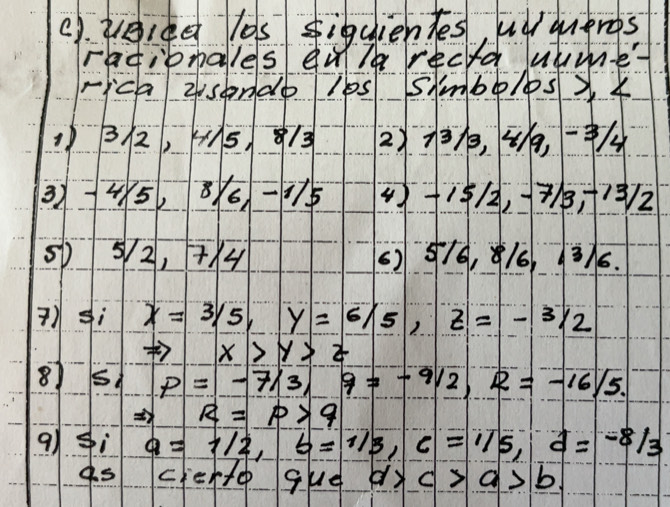 c). Ubica los siguientes números
racionales en la recta numé-
rica usando los símbolos >, <
1) 3/2, 4/5, 8/3 2) 13/3, 4/9, -3/4
3) -4/5, 8/6, -1/5 4) -15/2, -7/3, -13/2
5) 5/2, 7/4 6) 5/6, 8/6, 13/6.
7) si X = 3/5, Y = 6/5, Z = -3/2
⇒ X > Y > Z
8) Si P = -7/3, q = -9/2, R = -16/5.
⇒ R = P > q
9) Si a = 1/2, b = 1/3, c = 1/5, d = -8/3
es cierto que d > c > a > b.